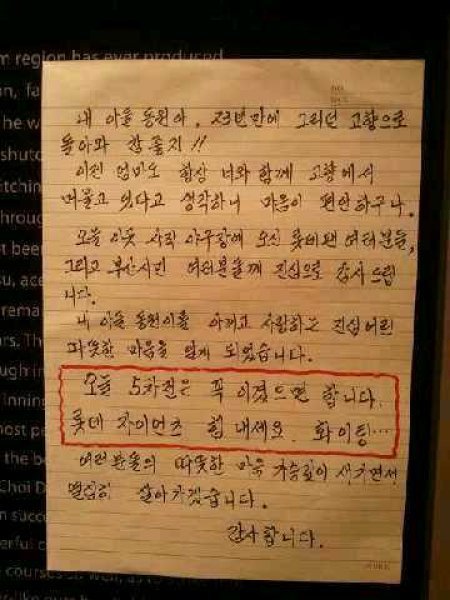 m region has ever produced
내 아들 동원아. 23년만에 그리던 고향으로
돌아와 참 좋지!!
이젠 엄마도 항상 너와 함께 고향에서
머물고 있다고 생각하니 마음이 편안하구나.
오늘 이곳 사직 야구장에 오신 롯데팬 여러분들,
그리고 부산시민 여러분들께 진심으로 감사드립
니다.
내 아들 동원이를 아끼고 사랑하는 진심어린
따뜻한 마음을 알게 되었습니다.
오늘 5차전은 꼭 이겼으면 합니다.
롯데 자이언츠 힘내세요. 화이팅…
여러분들의 따뜻한 마음 가슴깊이 새기면서
열심히 살아가겠습니다.
감사합니다.